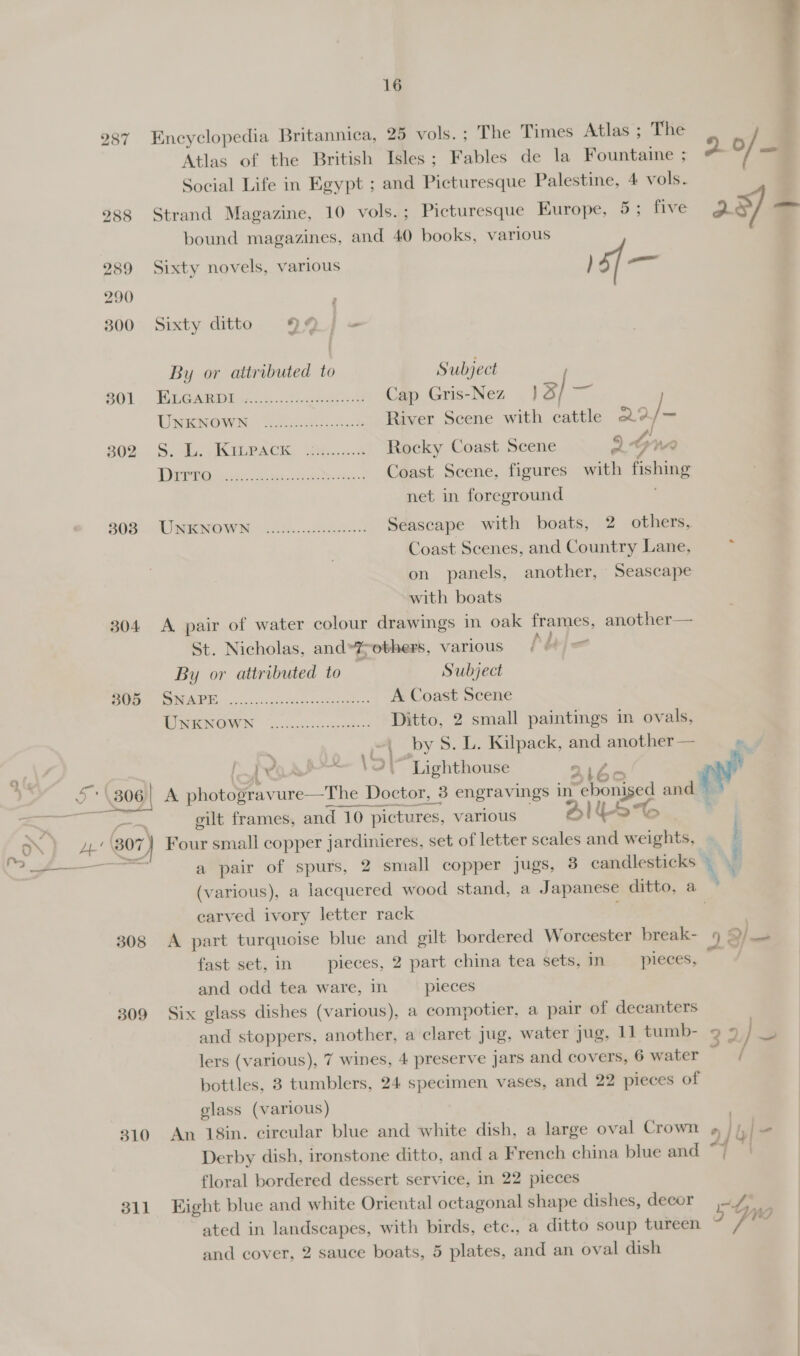 16
287 Encyclopedia Britannica, 25 vols. ; The Times Atlas ; The
Atlas of the British Isles ; Fables de la Fountaine ; 20/-
Social Life in Egypt ; and Picturesque Palestine, 4 vols.
288 Strand Magazine, 10 vols. ; Picturesque Europe, 5 ; five 23/-
bound magazines, and 40 books, various
289 Sixty novels, various 15/-
290
300 Sixty ditto 22/-
By or attributed to Subject
301 ELGARDI ........................ Cap Gris-Nez 13/-
UNKNOWN ........................ River Scene with cattle 22/-
302 S. L. KILPACK ............ Rocky Coast Scene 2 gns
DITTO ........................ Coast Scene, figures with fishing
net in foreground
303 UNKNOWN ........................ Seascape with boats, 2 others,
Coast Scenes, and Country Lane,
on panels, another, Seascape
with boats
304 A pair of water colour drawings in oak frames, another—
St. Nicholas, and 7 others, various
By or attributed to Subject
305 SNAPE ........................ A Coast Scene
UNKNOWN ........................ Ditto, 2 small paintings in ovals,
by S. L. Kilpack, and another —
Lighthouse
306 A photogravure—The Doctor, 3 engravings in ebonised and
gilt frames, and 10 pictures, various
307 Four small copper jardinieres, set of letter scales and weights,
a pair of spurs, 2 small copper jugs, 3 candlesticks
(various), a lacquered wood stand, a Japanese ditto, a
carved ivory letter rack
308 A part turquoise blue and gilt bordered Worcester break-
fast set, in pieces, 2 part china tea sets, in pieces,
and odd tea ware, in pieces
309 Six glass dishes (various), a compotier, a pair of decanters
and stoppers, another, a claret jug, water jug, 11 tumb- 22/-
lers (various), 7 wines, 4 preserve jars and covers, 6 water
bottles, 3 tumblers, 24 specimen vases, and 22 pieces of
glass (various)
310 An 18in. circular blue and white dish, a large oval Crown
Derby dish, ironstone ditto, and a French china blue and
floral bordered dessert service, in 22 pieces
311 Eight blue and white Oriental octagonal shape dishes, decor
ated in landscapes, with birds, etc., a ditto soup tureen 5 gns
and cover, 2 sauce boats, 5 plates, and an oval dish